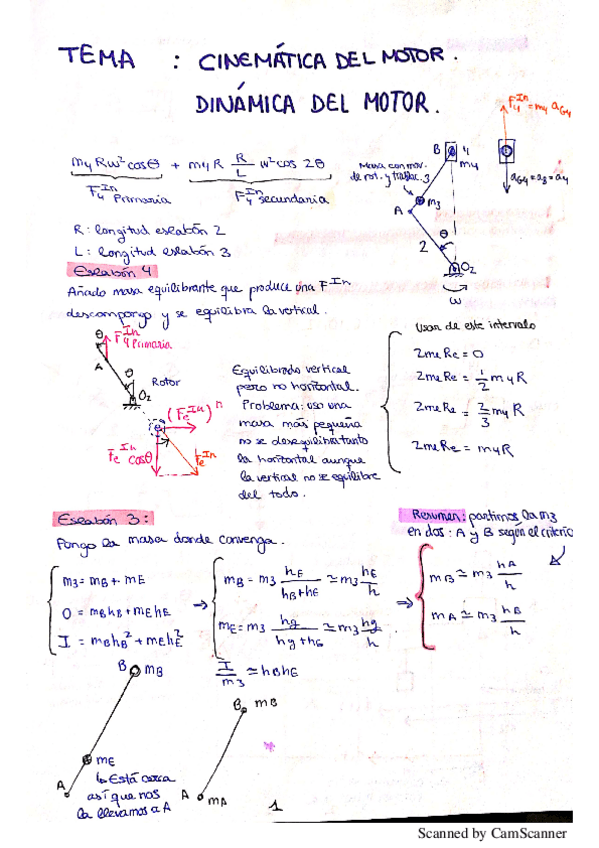 TEMA : CINEMÁTICA DEL MOTOR.
DINÁMICA DEL MOTOR.
F₄ᴵⁿ = m₄ a_G4
a_G4 = a_B = a_4
m₄Rω²cosθ + m₄R R/L ω²cos 2θ
F₄ᴵⁿ Primaria
F₄ᴵⁿ secundaria
Masa con mov. de rot. y traslac.
B 4 m₄
3
m₃
A
θ
2
O₂
ω
R: longitud eslabón 2
L: longitud eslabón 3
Eslabón 4
Añado masa equilibrante que produce una Fᴵⁿ
descompongo y se equilibra la vertical.
θ F₄ᴵⁿ Primaria
A
θ
Rotor
O₂
e
(Feᴵⁿ)ⁿ
Feᴵⁿ cosθ
Feᴵⁿ
Equilibrado vertical
pero no horizontal.
Problema: uso una
masa más pequeña
no se desequilibra tanto
la horizontal aunque
la vertical no se equilibre
del todo.
Usar de este intervalo
2meRe = 0
2meRe = 1/2 m₄R
2meRe = 2/3 m₄R
2meRe = m₄R
Eslabón 3:
Pongo la masa donde convenga.
m₃ = mB + mE
0 = mBhB + mEhE
I = mBhB² + mEhE²
→
mB = m₃ hE/(hB+hE) ≃ m₃ hE/h
mE = m₃ hg/(hg+hE) ≃ m₃ hg/h
I/m₃ ≃ hBhE
⇒
Resumen: partimos la m₃
en dos: A y B según el criterio
mB ≃ m₃ hA/h
mA ≃ m₃ hB/h
B mB
mE
↳ Está cerca
así que nos
la llevamos a A
A
B mB
A mA
1
Scanned by CamScanner